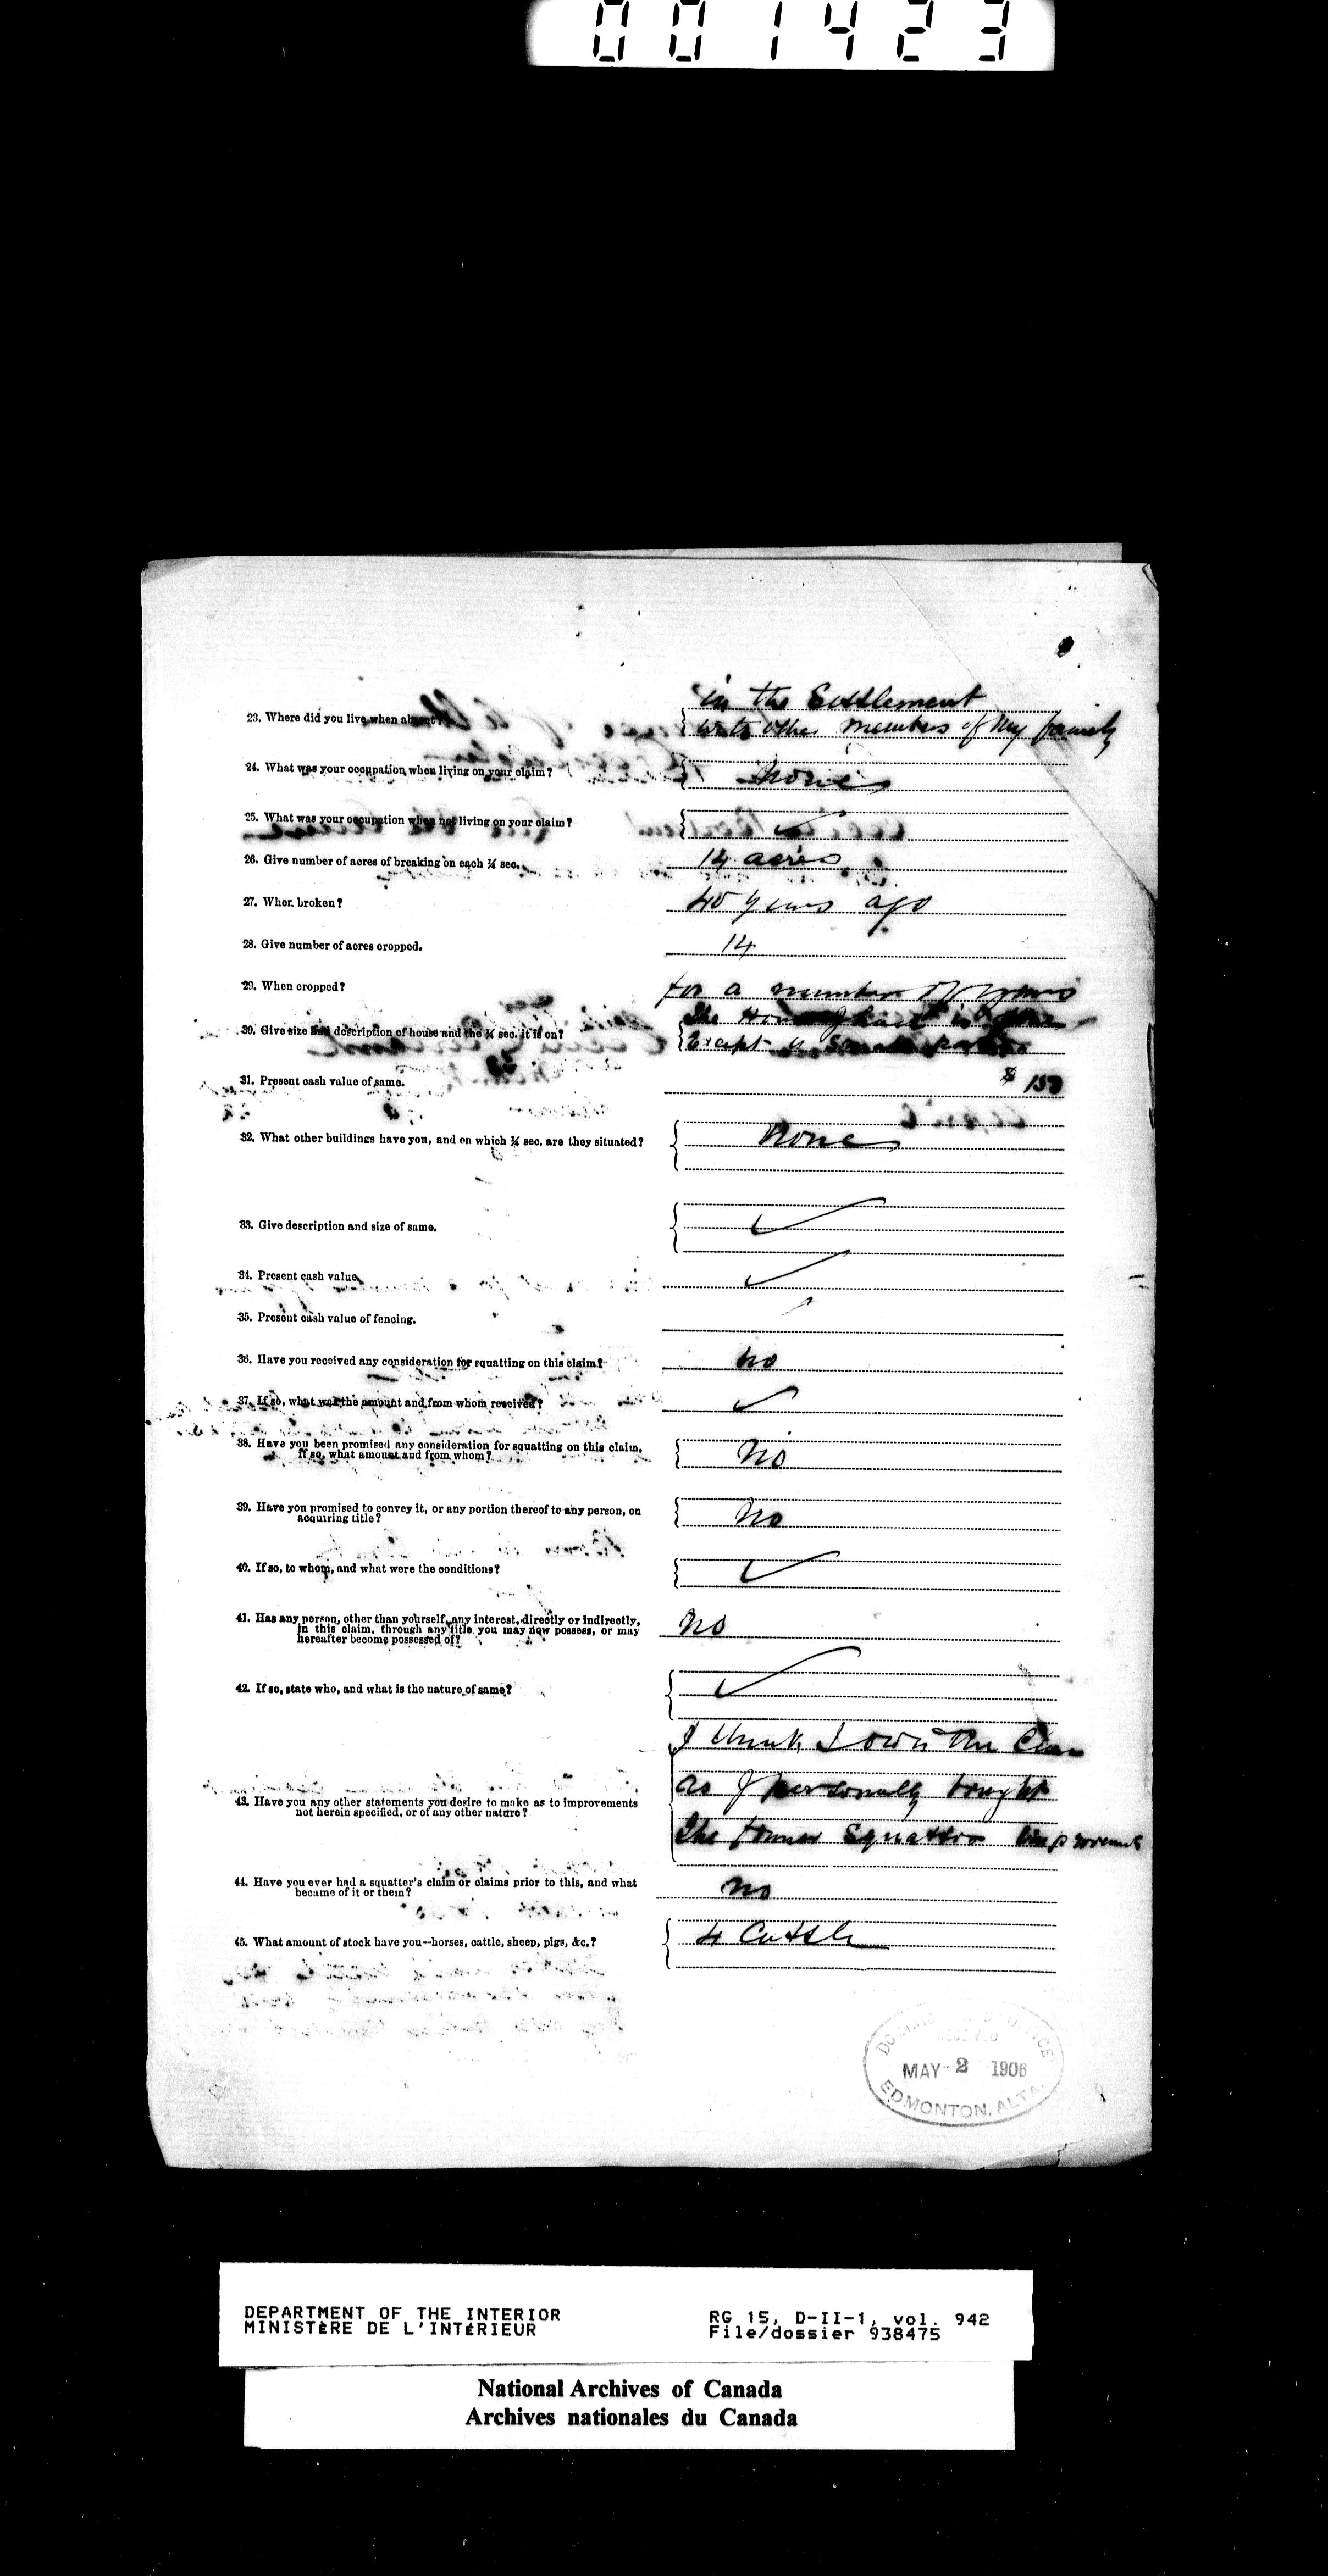 001423
in the Settlement
23. Where did you live when absent? with other members of my family
24. What was your occupation when living on your claim? None
25. What was your occupation when not living on your claim? ✓
26. Give number of acres of breaking on each ¼ sec. 14 acres
27. When broken? 40 years ago
28. Give number of acres cropped. 14
29. When cropped? for a number of years
The House I had is
30. Give size and description of house and the ¼ sec. it is on? Except a small
31. Present cash value of same. $ 150
32. What other buildings have you, and on which ¼ sec. are they situated? None
33. Give description and size of same. ✓
34. Present cash value. ✓
35. Present cash value of fencing.
36. Have you received any consideration for squatting on this claim? no
37. If so, what was the amount and from whom received? ✓
38. Have you been promised any consideration for squatting on this claim,
If so, what amount and from whom? No
39. Have you promised to convey it, or any portion thereof to any person, on
acquiring title? No
40. If so, to whom, and what were the conditions? ✓
41. Has any person, other than yourself, any interest, directly or indirectly,
in this claim, through any title you may now possess, or may
hereafter become possessed of? No
42. If so, state who, and what is the nature of same? ✓
I think I own the
as I personally bought
43. Have you any other statements you desire to make as to improvements
not herein specified, or of any other nature?
the former Squatters
44. Have you ever had a squatter's claim or claims prior to this, and what
became of it or them? no
45. What amount of stock have you—horses, cattle, sheep, pigs, &c.? 4 Cattle
MAY 2 1906
EDMONTON, ALTA.
DEPARTMENT OF THE INTERIOR RG 15, D-II-1, vol. 942
MINISTÈRE DE L'INTÉRIEUR File/dossier 938475
National Archives of Canada
Archives nationales du Canada